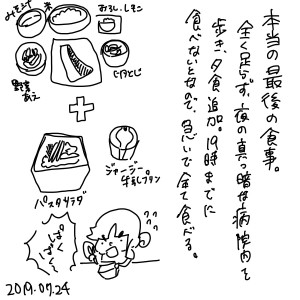 本当の最後の食事。
全く足らず、夜の真っ暗な病院内を
歩き、夕食追加。19時までに
食べないとなので、急いで全て食べる。
みそ汁
米
おろし、レモン
野菜あえ
＋
パスタサラダ
ジャージー牛乳プリン
ぱくぱく
2019.07.24